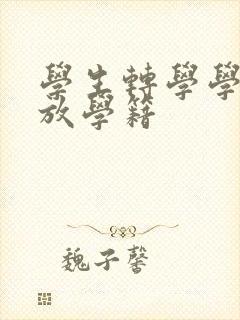 學生轉學學
放學籍
魏子馨